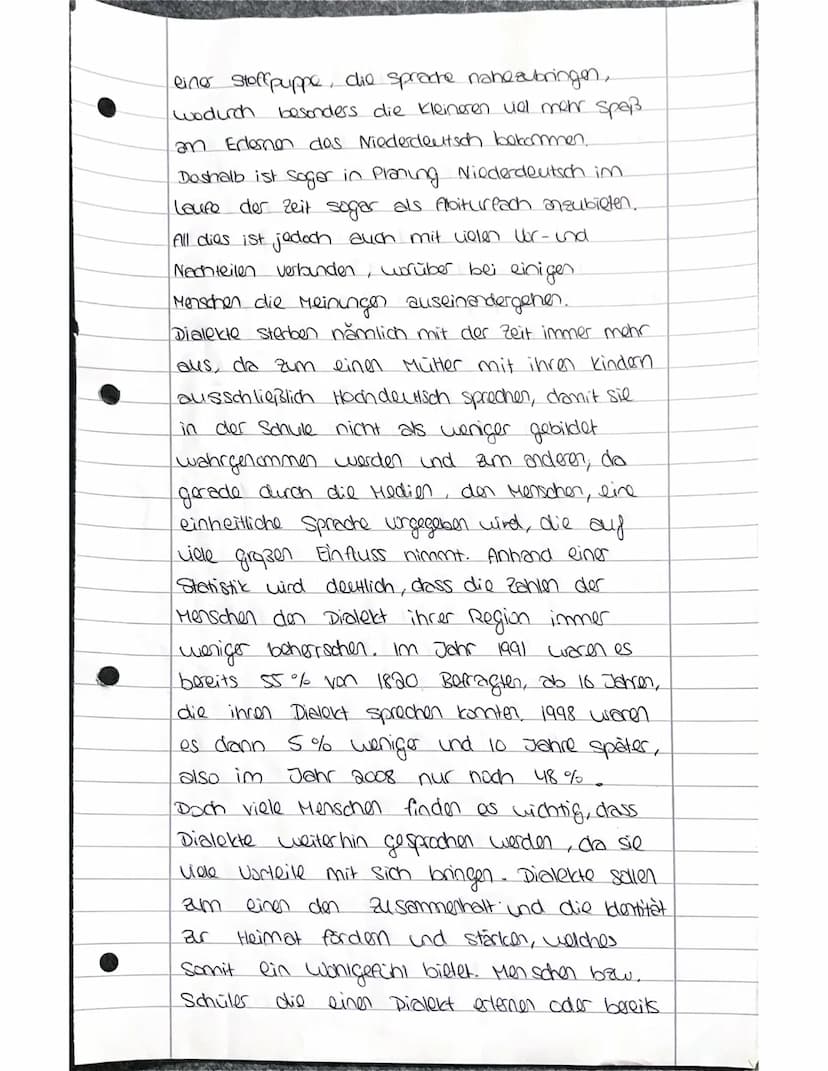 einer Stoffpuppe, die Sprache nahezubringen,
wodurch besonders die kleineren viel mehr Spaß
am Erlernen das Niederdeutsch bekommen.
Deshalb ist sogar in Planung Niederdeutsch im
Laufe der Zeit sogar als Abiturfach anzubieten.
All dies ist jedoch auch mit vielen Vor- und
Nachteilen verbunden, worüber bei einigen
Menschen die Meinungen auseinandergehen.
Dialekte sterben nämlich mit der Zeit immer mehr
aus, da zum einen Mütter mit ihren Kindern
ausschließlich Hochdeutsch sprechen, damit sie
in der Schule nicht als weniger gebildet
wahrgenommen werden und zum anderen, da
gerade durch die Medien, den Menschen, eine
einheitliche Sprache vorgegeben wird, die auf
viele großen Einfluss nimmt. Anhand einer
Statistik wird deutlich, dass die Zahlen der
Menschen den Dialekt ihrer Region immer
weniger beherrschen. Im Jahr 1991 waren es
bereits 55 % von 1820 Befragten, ab 16 Jahren,
die ihren Dialekt sprechen konnten. 1998 waren
es dann 5 % weniger und 10 Jahre später,
also im Jahr 2008 nur noch 48 %.
Doch viele Menschen finden es wichtig, dass
Dialekte weiterhin gesprochen werden, da sie
viele Vorteile mit sich bringen. Dialekte sollen
zum einen den Zusammenhalt und die Identität
zur Heimat fördern und stärken, welches
somit ein Wohlgefühl bietet. Menschen bzw.
Schüler die einen Dialekt erlernen oder bereits